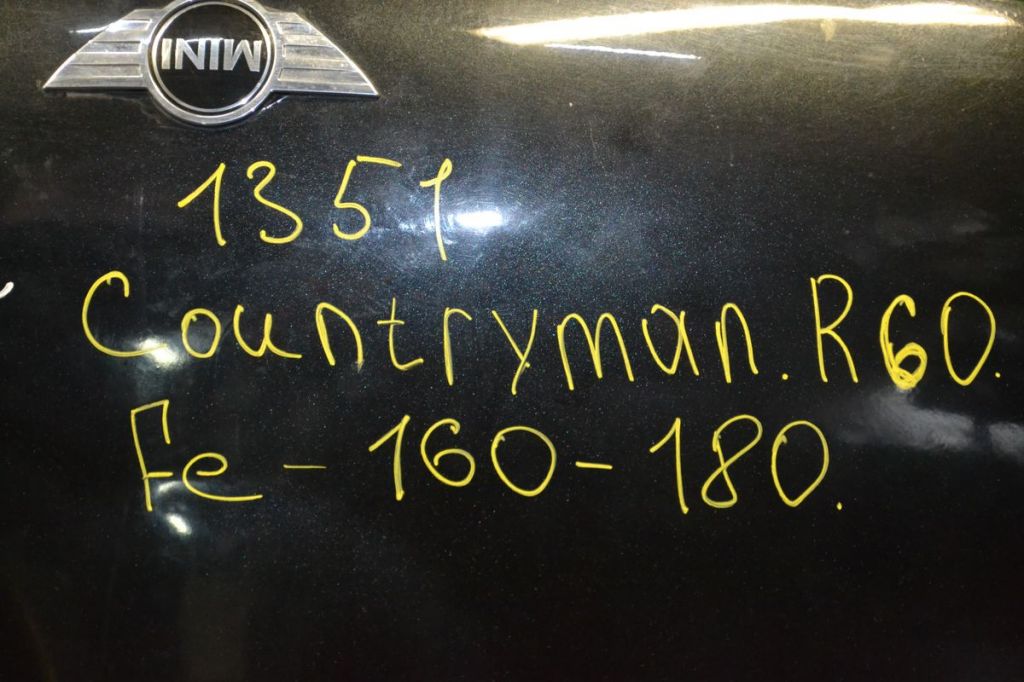 MINI
1351
Countryman. R60.
Fe - 160 - 180.